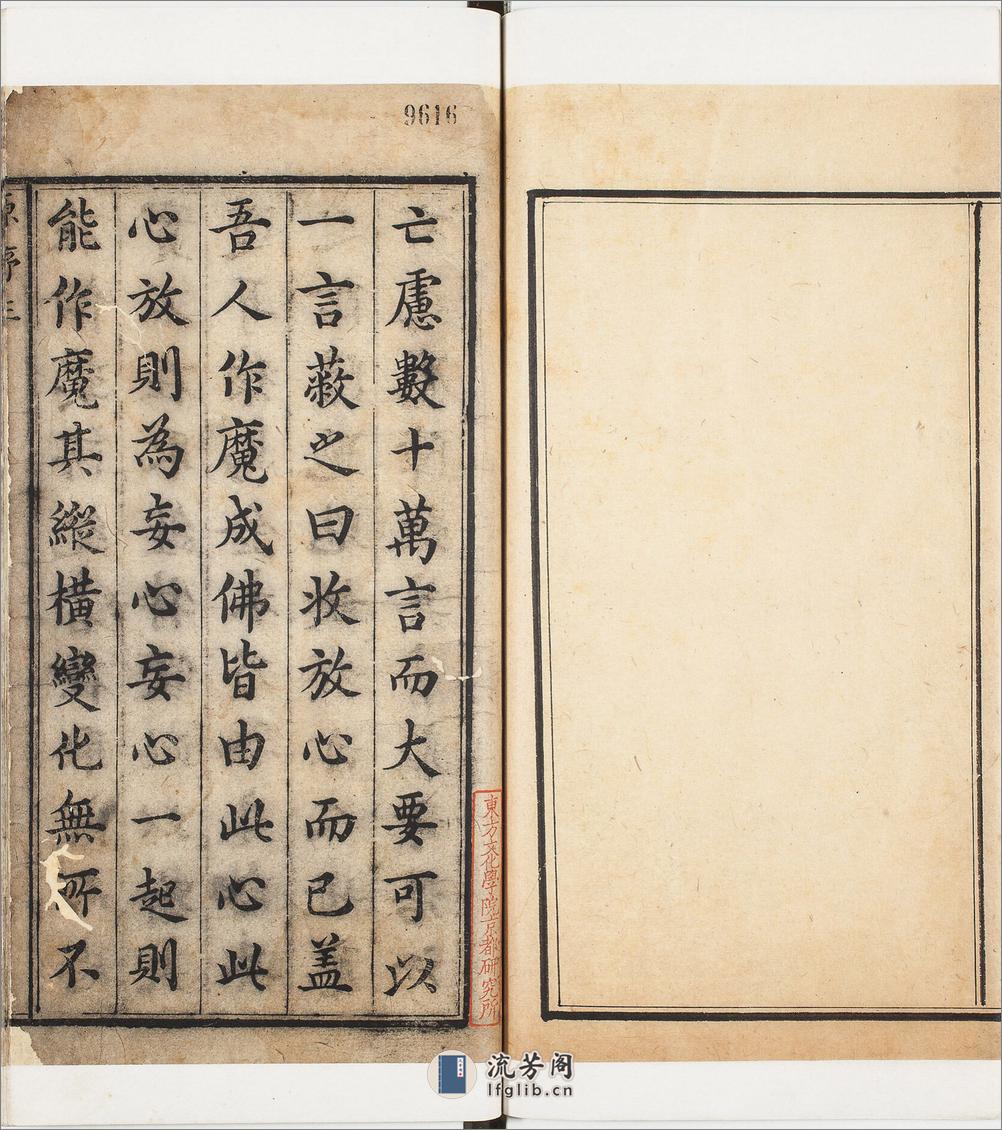 9616
亡慮數十萬言而大要可以
一言蔽之曰收放心而已盖
吾人作魔成佛皆由此心此
心放則為妄心妄心一起則
能作魔其縱橫變化無所不
序三
東方文化學院京都研究所
流芳阁
lfglib.cn